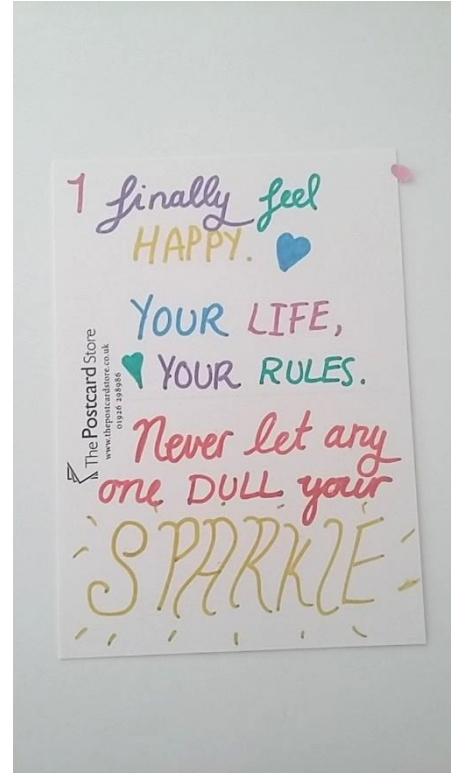 I finally feel
HAPPY.
YOUR LIFE,
YOUR RULES.
Never let any
one DULL your
SPARKLE
The Postcard Store
www.thepostcardstore.co.uk
01926 298986